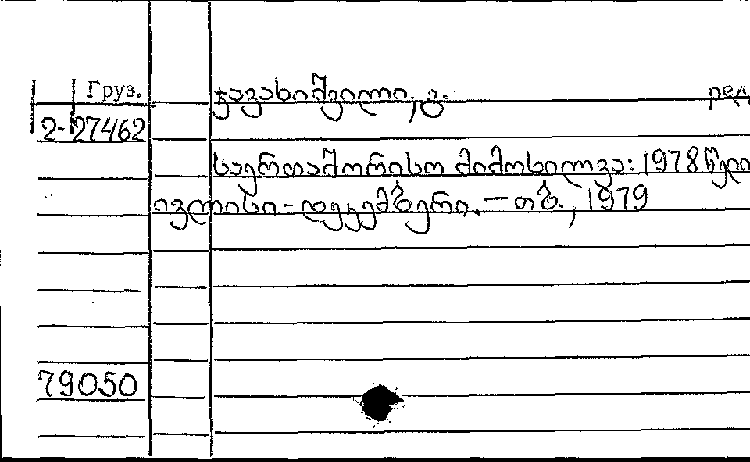 Груз. ჯავახიშვილი, გ. ред
2-27462
საერთაშორისო მიმოხილვა: 1978 წლი
ივლისი - დეკემბერი. — თბ., 1979
79050